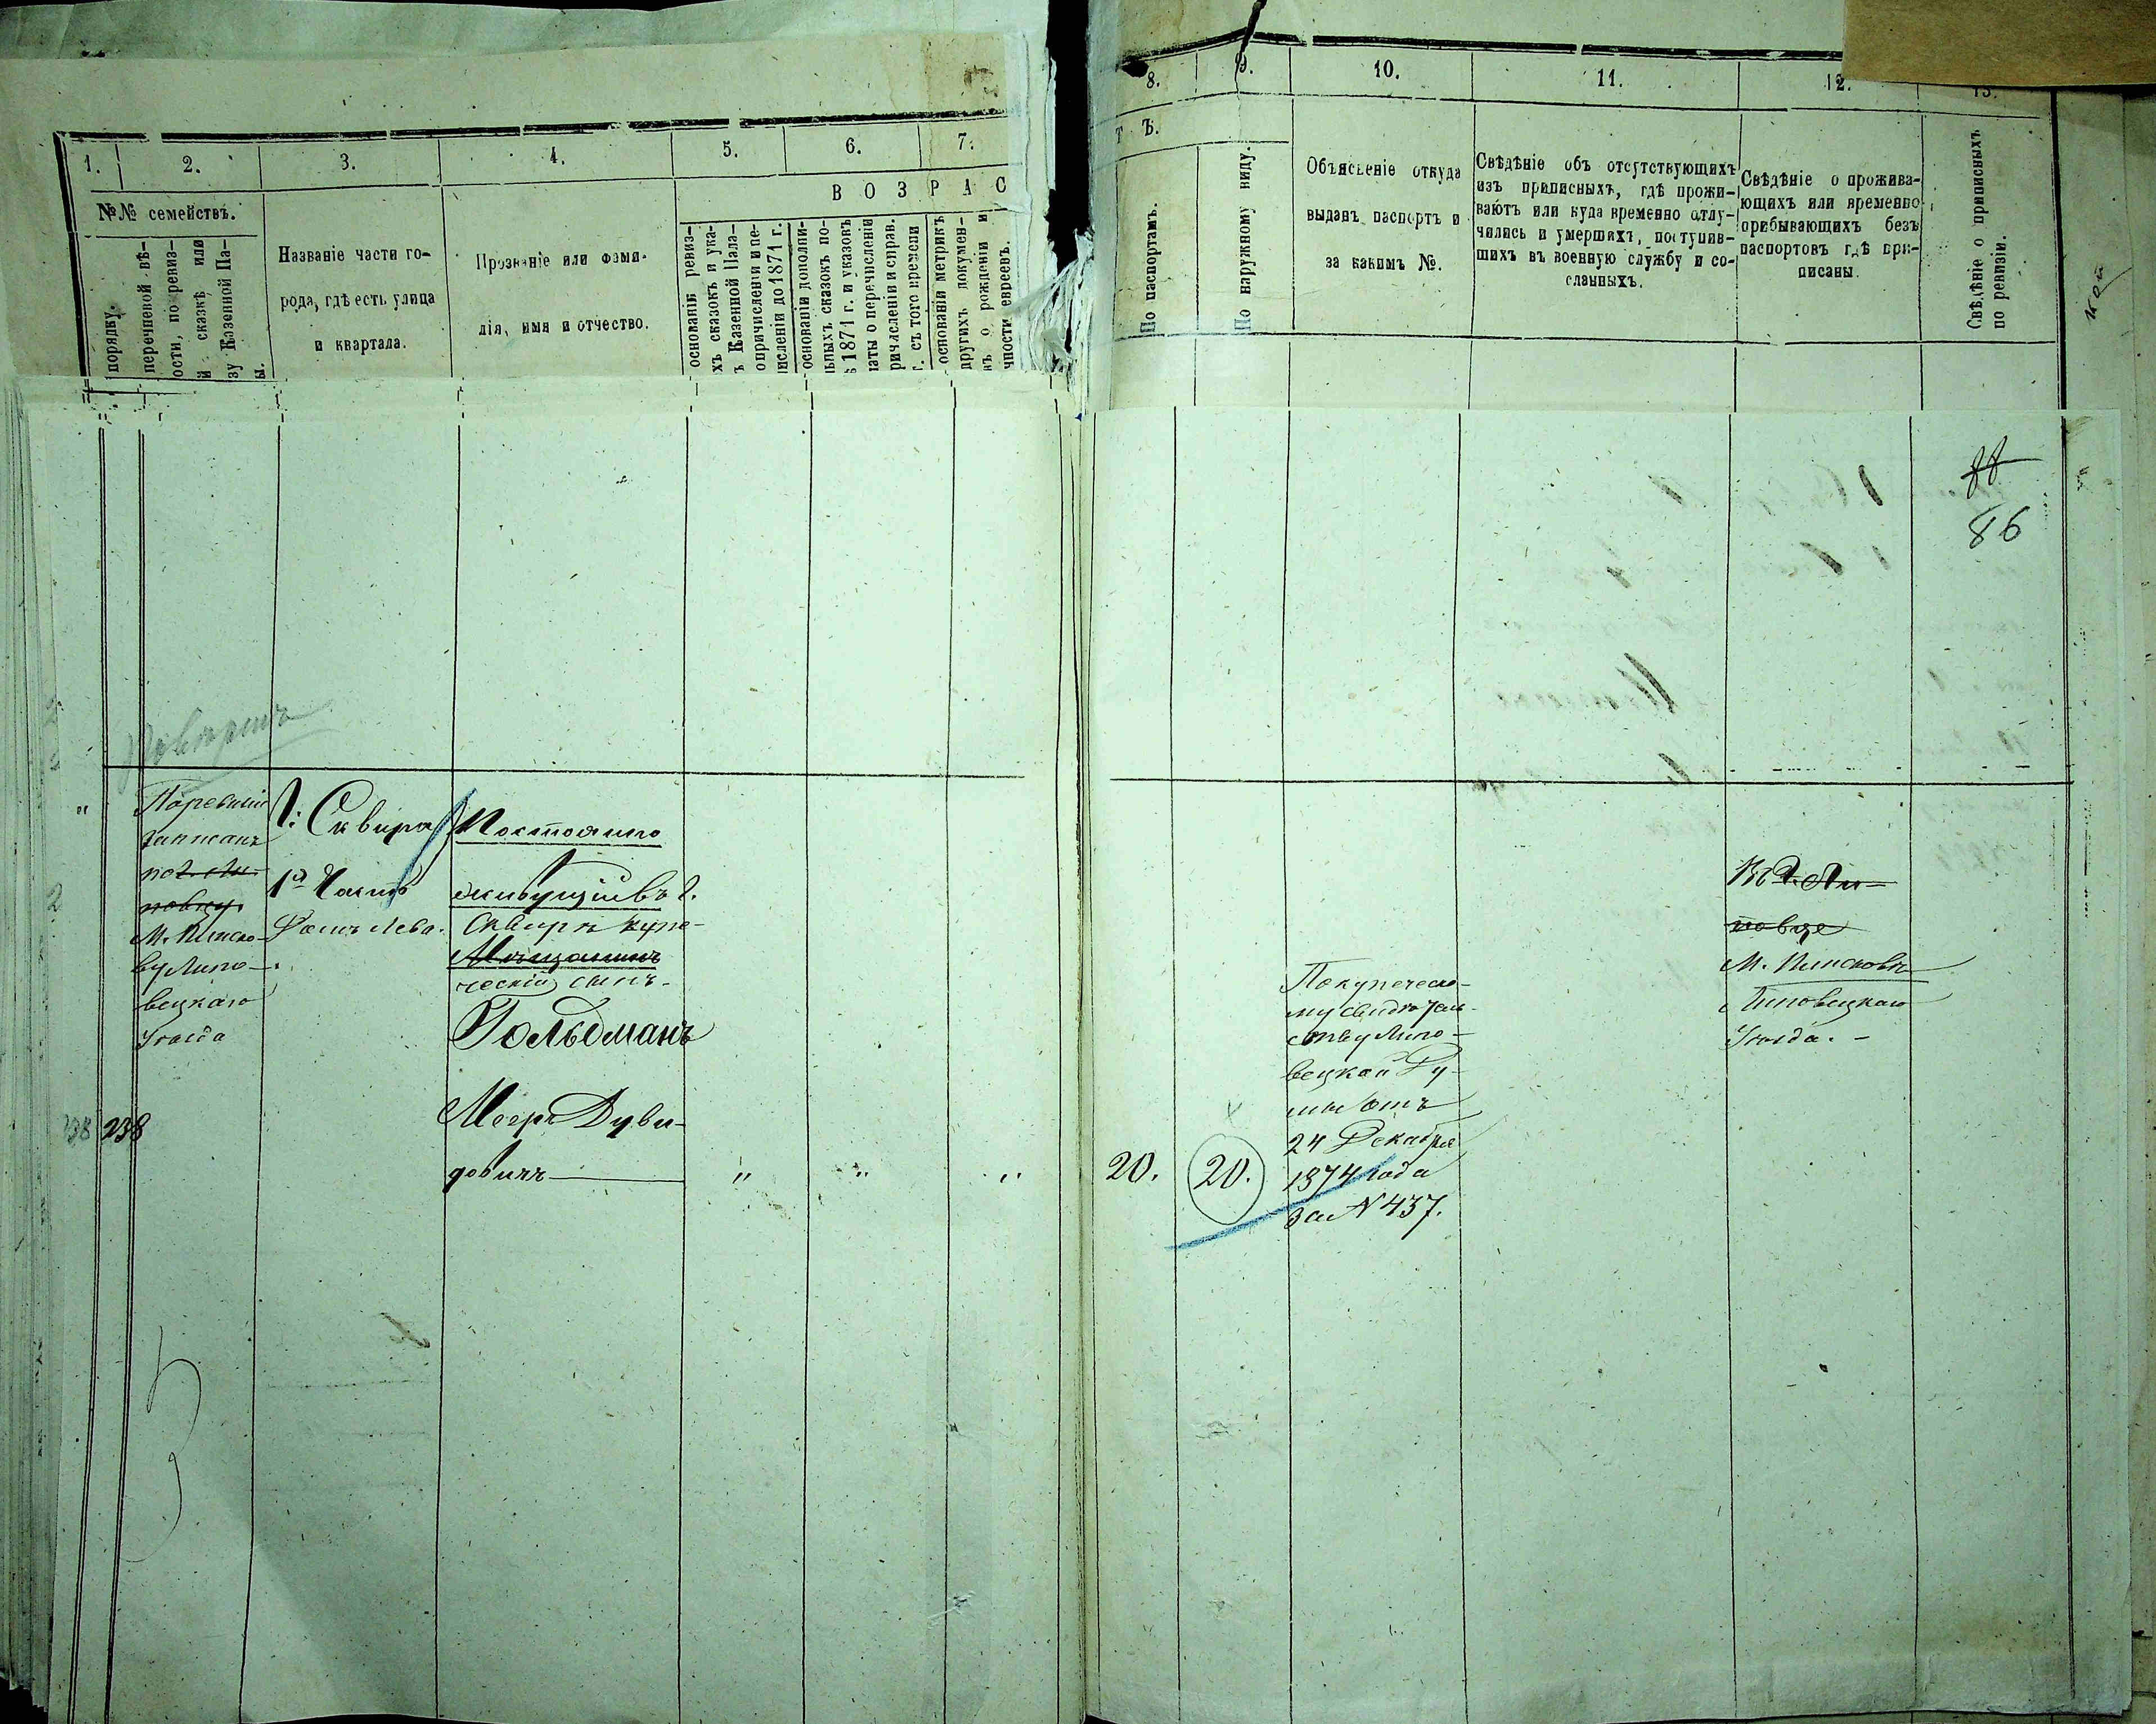 1.
2.
3.
4.
5.
6.
7.
8.
9.
10.
11.
12.
13.
№№ семействъ.
порядку.
перечневой вѣ-
ости, по ревиз-
й сказкѣ или
зу Казенной Па-
ы.
Названіе части го-
рода, гдѣ есть улица
и квартала.
Прозваніе или фами-
лія, имя и отчество.
В О З Р А С
Т Ъ.
основаніи ревиз-
хъ сказокъ и ука-
ъ Казенной Пала-
о причисленіи и пе-
исленіи до 1871 г.
основаніи дополни-
ьныхъ сказокъ по-
ѣ 1871 г. и указовъ
латы о перечисленіи
ричисленіи и справ.
г. съ того времени
основаніи метрикъ
другихъ докумен-
въ о рожденіи и
чности евреевъ.
По паспортамъ.
По наружному виду.
Объясненіе откуда
выданъ паспортъ и
за какимъ №.
Свѣдѣніе объ отсутствующихъ
изъ приписныхъ, гдѣ прожи-
ваютъ или куда временно отлу-
чились и умершихъ, поступив-
шихъ въ военную службу и со-
сланныхъ.
Свѣдѣніе о прожива-
ющихъ или временно
прибывающихъ безъ
паспортовъ гдѣ при-
писаны.
Свѣдѣніе о приписныхъ
по ревизіи.
88
86
По ревизіи
записанъ
по г. Ли-
повцу.
М. Пинско-
ву Липо-
вецкаго
Уѣзда
238
238
Г: Сквира
1я Часть
Домъ Лева.
Постоянно
живущій въ г.
Сквирѣ купе-
Мѣщанинъ
ческій сынъ.
Гольдманъ
Мееръ Дуви-
довичъ
" " "
20.
20.
По купеческо-
му свидѣтель-
ству Липо-
вецкой Ду-
мы отъ
24 Декабря
1874 года
за N 437.
Въ г. Ли-
повце
М. Пинсковѣ
Липовецкаго
Уѣзда. -